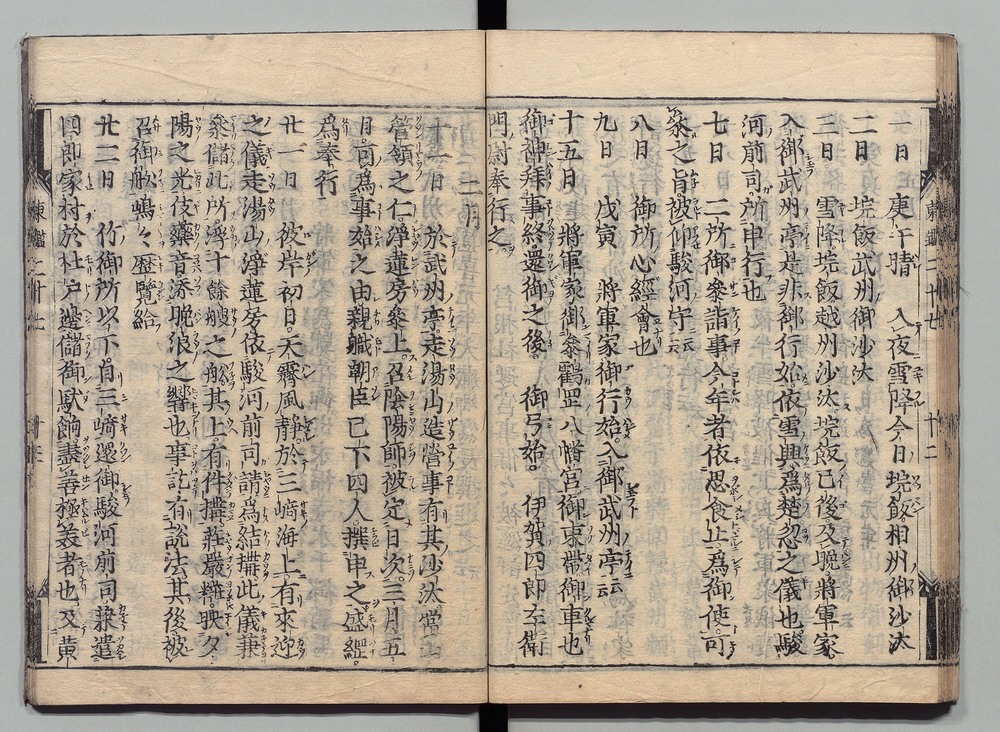 一日　庚午晴　入夜雪降今日垸飯相州御沙汰
二日　垸飯武州御沙汰
三日　雪降垸飯越州沙汰垸飯已後及晩將軍家
入御武州亭是非御行始依雪興爲楚忽之儀也駿
河前司所申行也
七日　二所御參詣事今年者依思食止爲御使可
參之旨被仰駿河守云云
八日　御所心經會也
九日　戊寅　將軍家御行始入御武州亭云云
十五日　將軍家御參鶴罡八幡宮御束帶御車也
御神拜事終還御之後　御弓始　伊賀四郎左衛
門尉奉行之
二月
十一日　於武州亭走湯山造營事有其沙汰當山
管領之仁淨蓮房參上召陰陽師被定日次三月五
日可爲事始之由親職朝臣已下四人撰申之盛經
爲奉行
廿一日　彼岸初日天霽風靜於三﨑海上有來迎
之儀走湯山淨蓮房依駿河前司請爲結搆此儀兼
參儲此所浮十餘艘之舩其上有件搆莊嚴粧映夕
陽之光伎藥音添晩浪之響也事訖有說法其後被
召御舩嶋々歴覽給
廿二日　竹御所以下自三﨑還御駿河前司兼遣
四郎家村於杜戸邊儲御駄餉盡善極羨者也又黄
東鑑二十七　十二
東鑑二十七